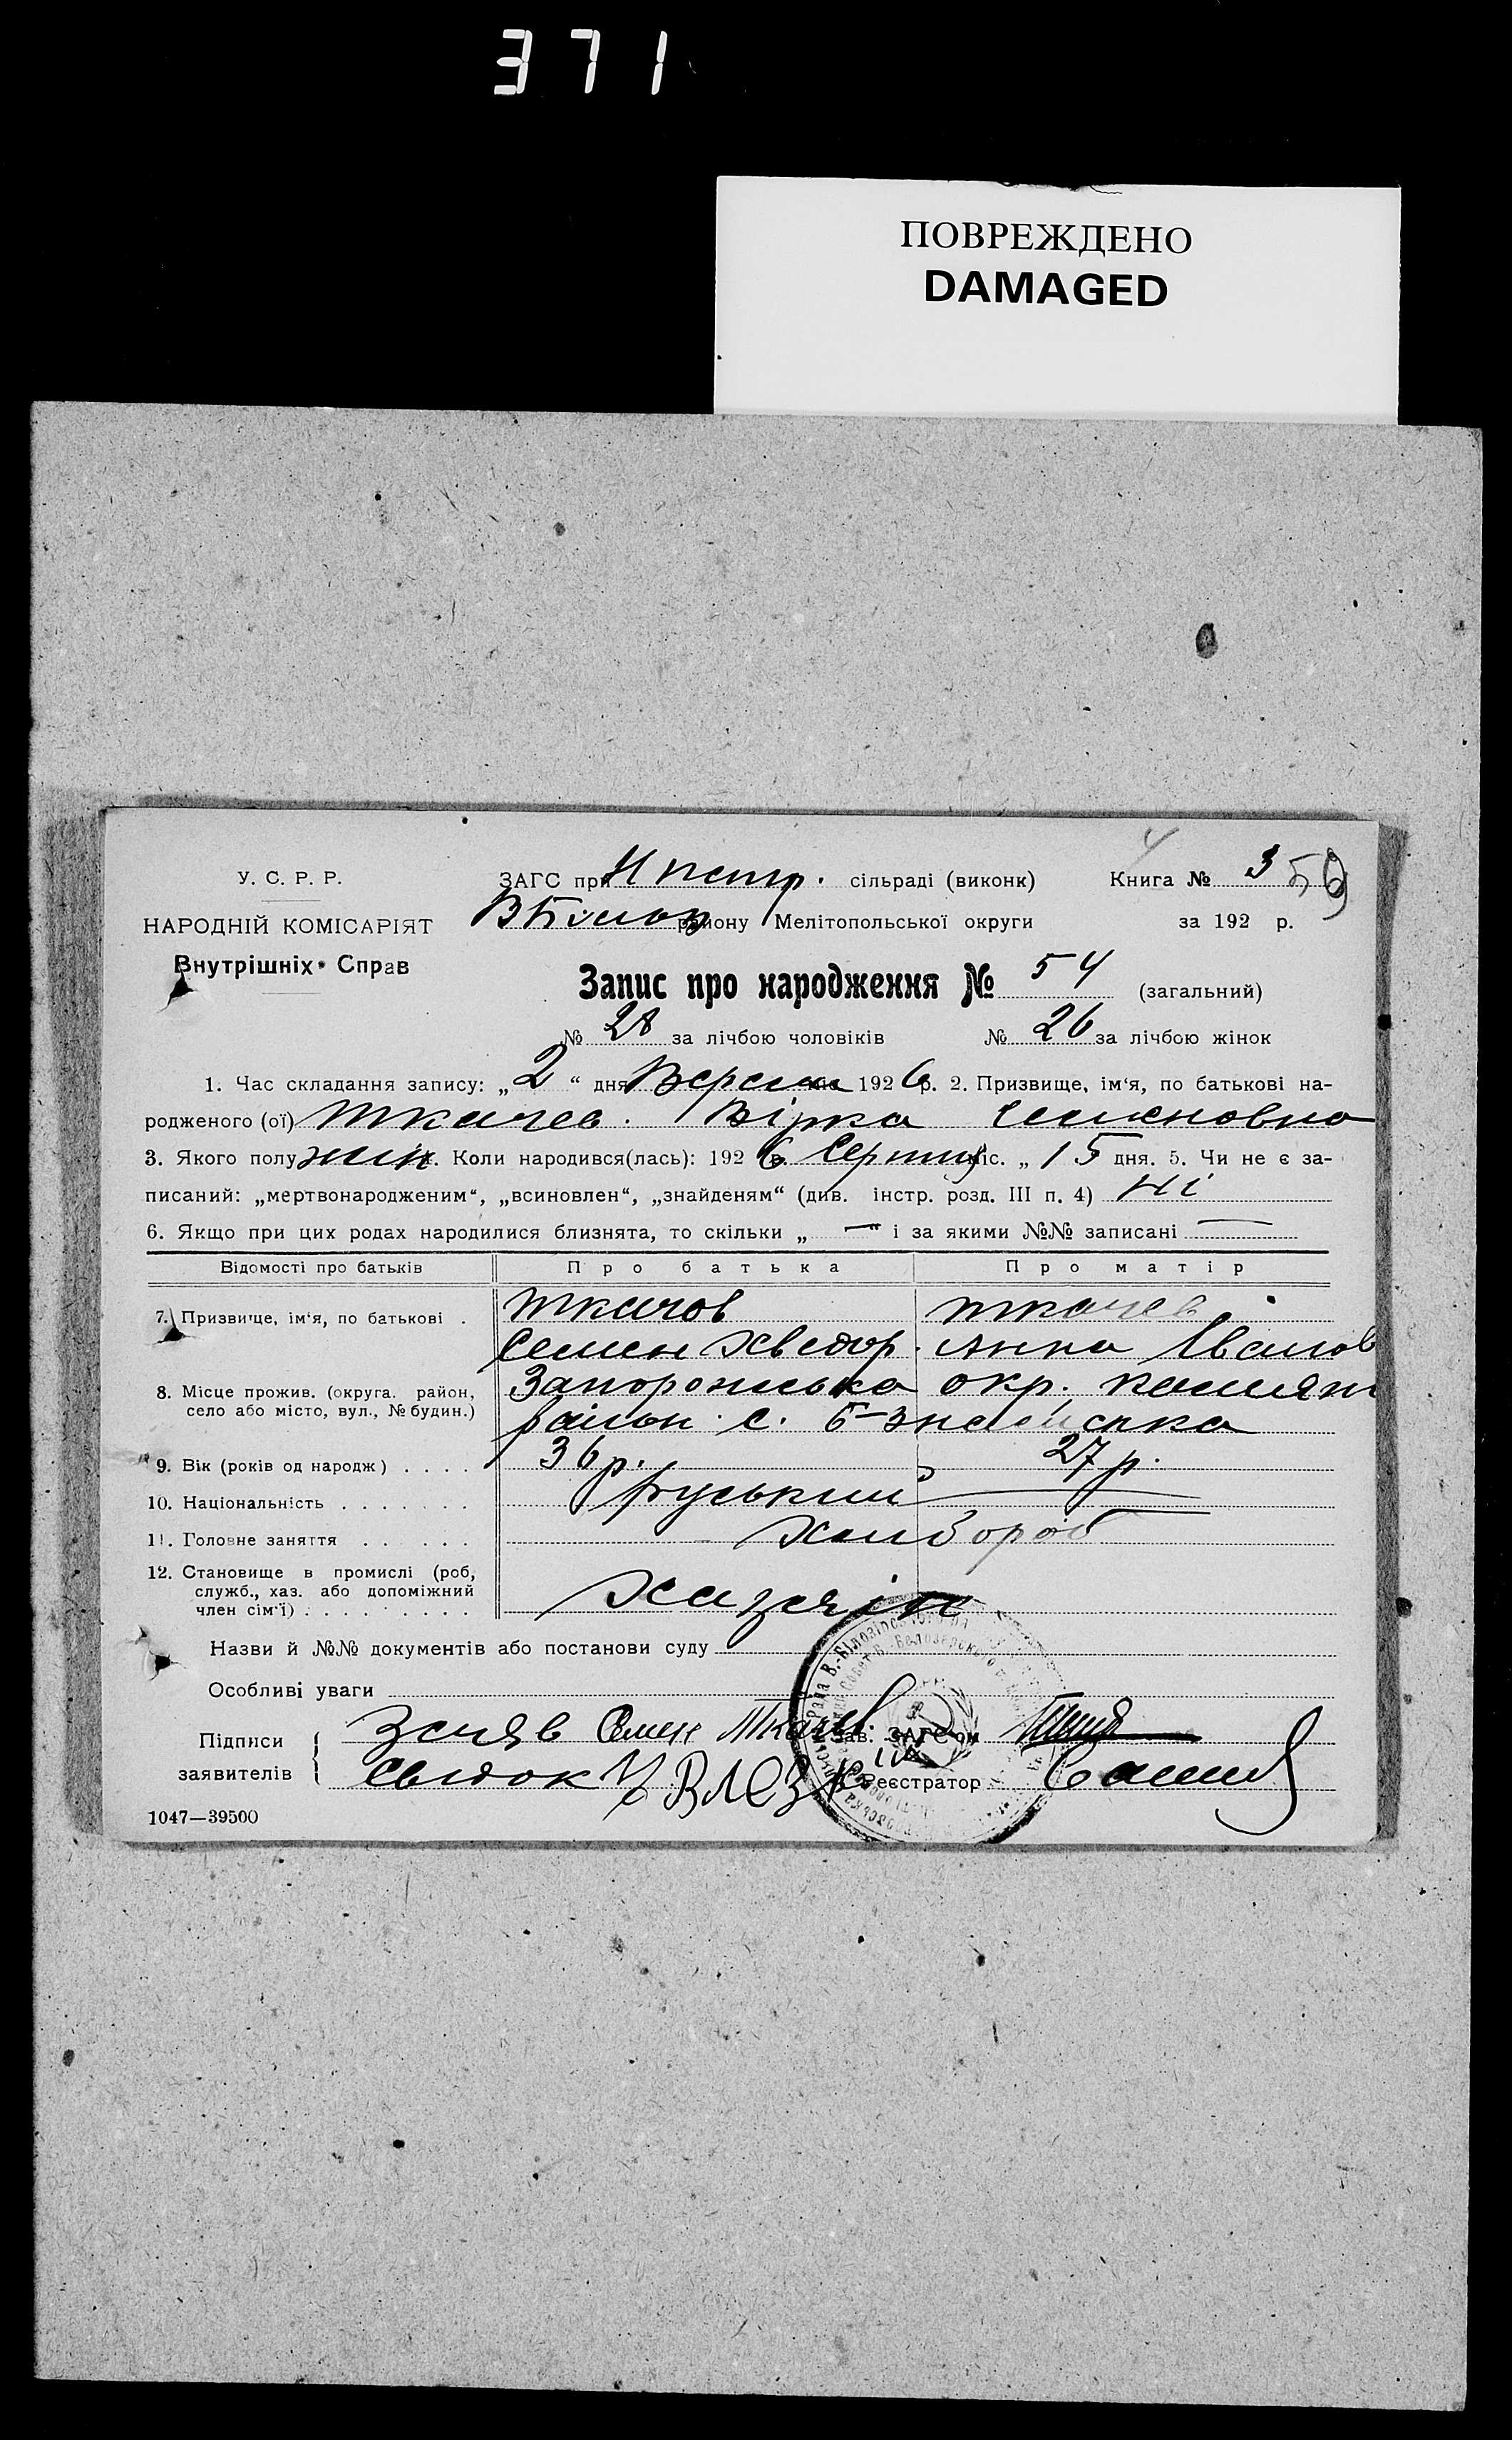 371
ПОВРЕЖДЕНО
DAMAGED
У. С. Р. Р.
НАРОДНІЙ КОМІСАРІЯТ
Внутрішніх Справ
ЗАГС при сільраді (виконк) Книга № 3 59
району Мелітопольської округи за 192 р.
Запис про народження № 54 (загальний)
№ 28 за лічбою чоловіків № 26 за лічбою жінок
1. Час складання запису: „2“ дня 1926 р. 2. Призвище, ім‘я, по батькові на-
родженого (ої) Ткачев. Вірка Семеновна
3. Якого полу жін. Коли народився(лась): 1926 р. Серпня міс. „15 дня. 5. Чи не є за-
писаний: „мертвонародженим“, „всиновлен“, „знайденям“ (див. інстр. розд. III п. 4) Ні
6. Якщо при цих родах народилися близнята, то скільки „ — “ і за якими №№ записані —
Відомості про батьків Про батька Про матір
7. Призвище, ім‘я, по батькові . Ткачов Ткачев
Семен Хведор. Анна Іванов
8. Місце прожив. (округа. район, Запорожська окр.
село або місто, вул., № будин.) район с.
9. Вік (років од народж) . . . . 36 р. 27 р.
10. Національність . . . . . . . руський
11. Головне заняття . . . . . . хлібороб
12. Становище в промислі (роб,
служб., хаз. або допоміжний
член сім‘ї) . . . . . . . . . хазяїн
Назви й №№ документів або постанови суду
Особливі уваги
Підписи заявителів
Семен Ткачев Зав. ЗАГС‘ом
Свідок Реєстратор
1047—39500